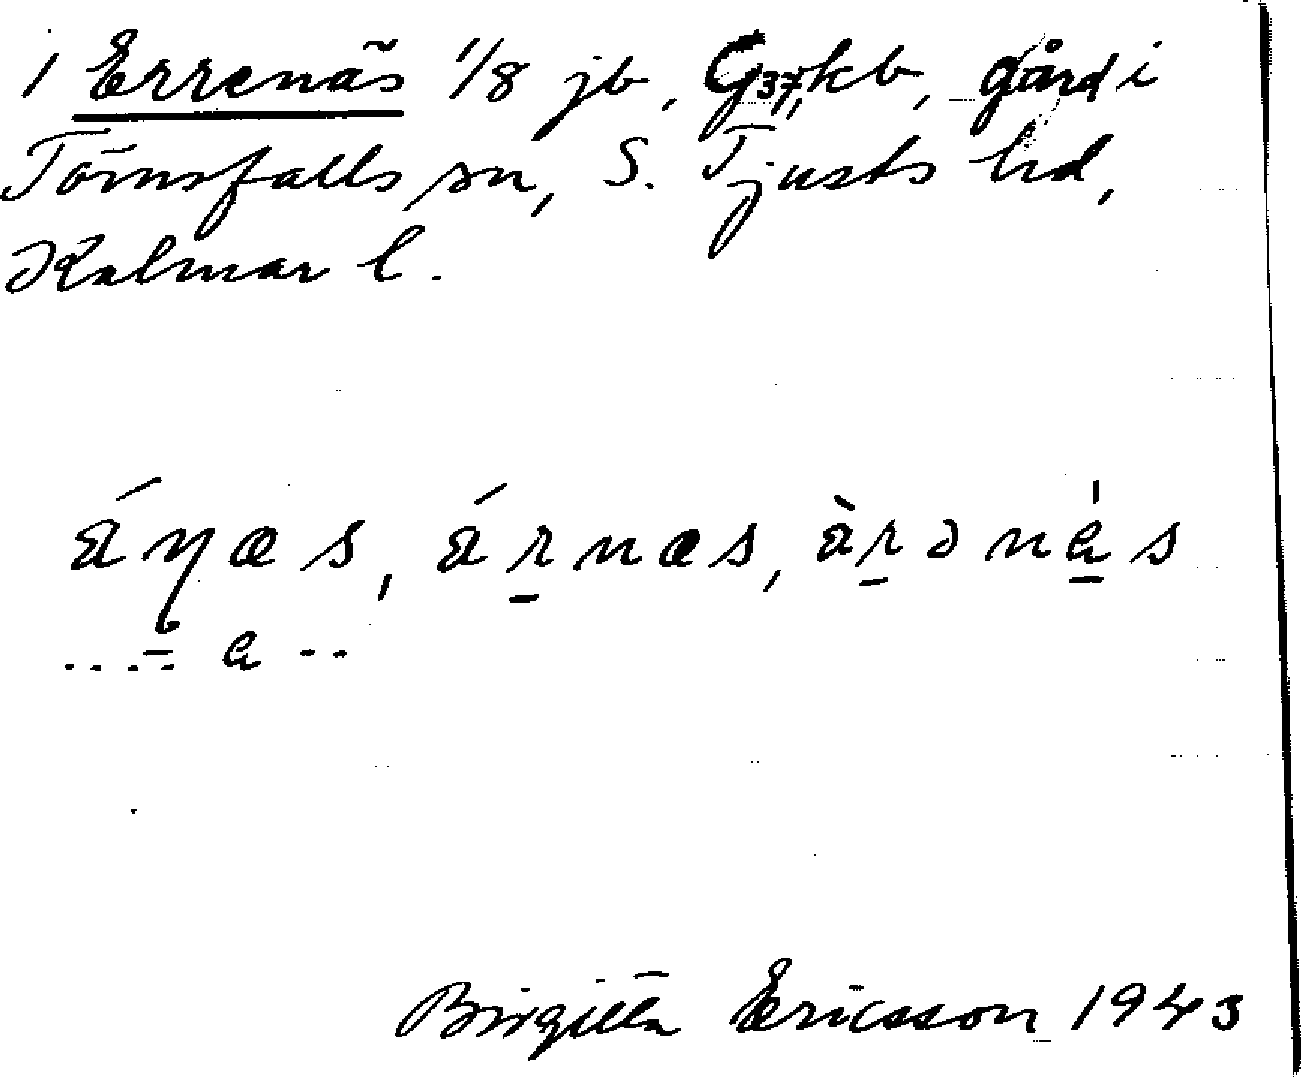 1 Errenäs 1/8 jb, G37, kb, gård i
Törnsfalls sn, S. Tjusts hd,
Kalmar l.
áŋæs, árnæs, àrənás
....a--
Birgitta Ericsson 1943